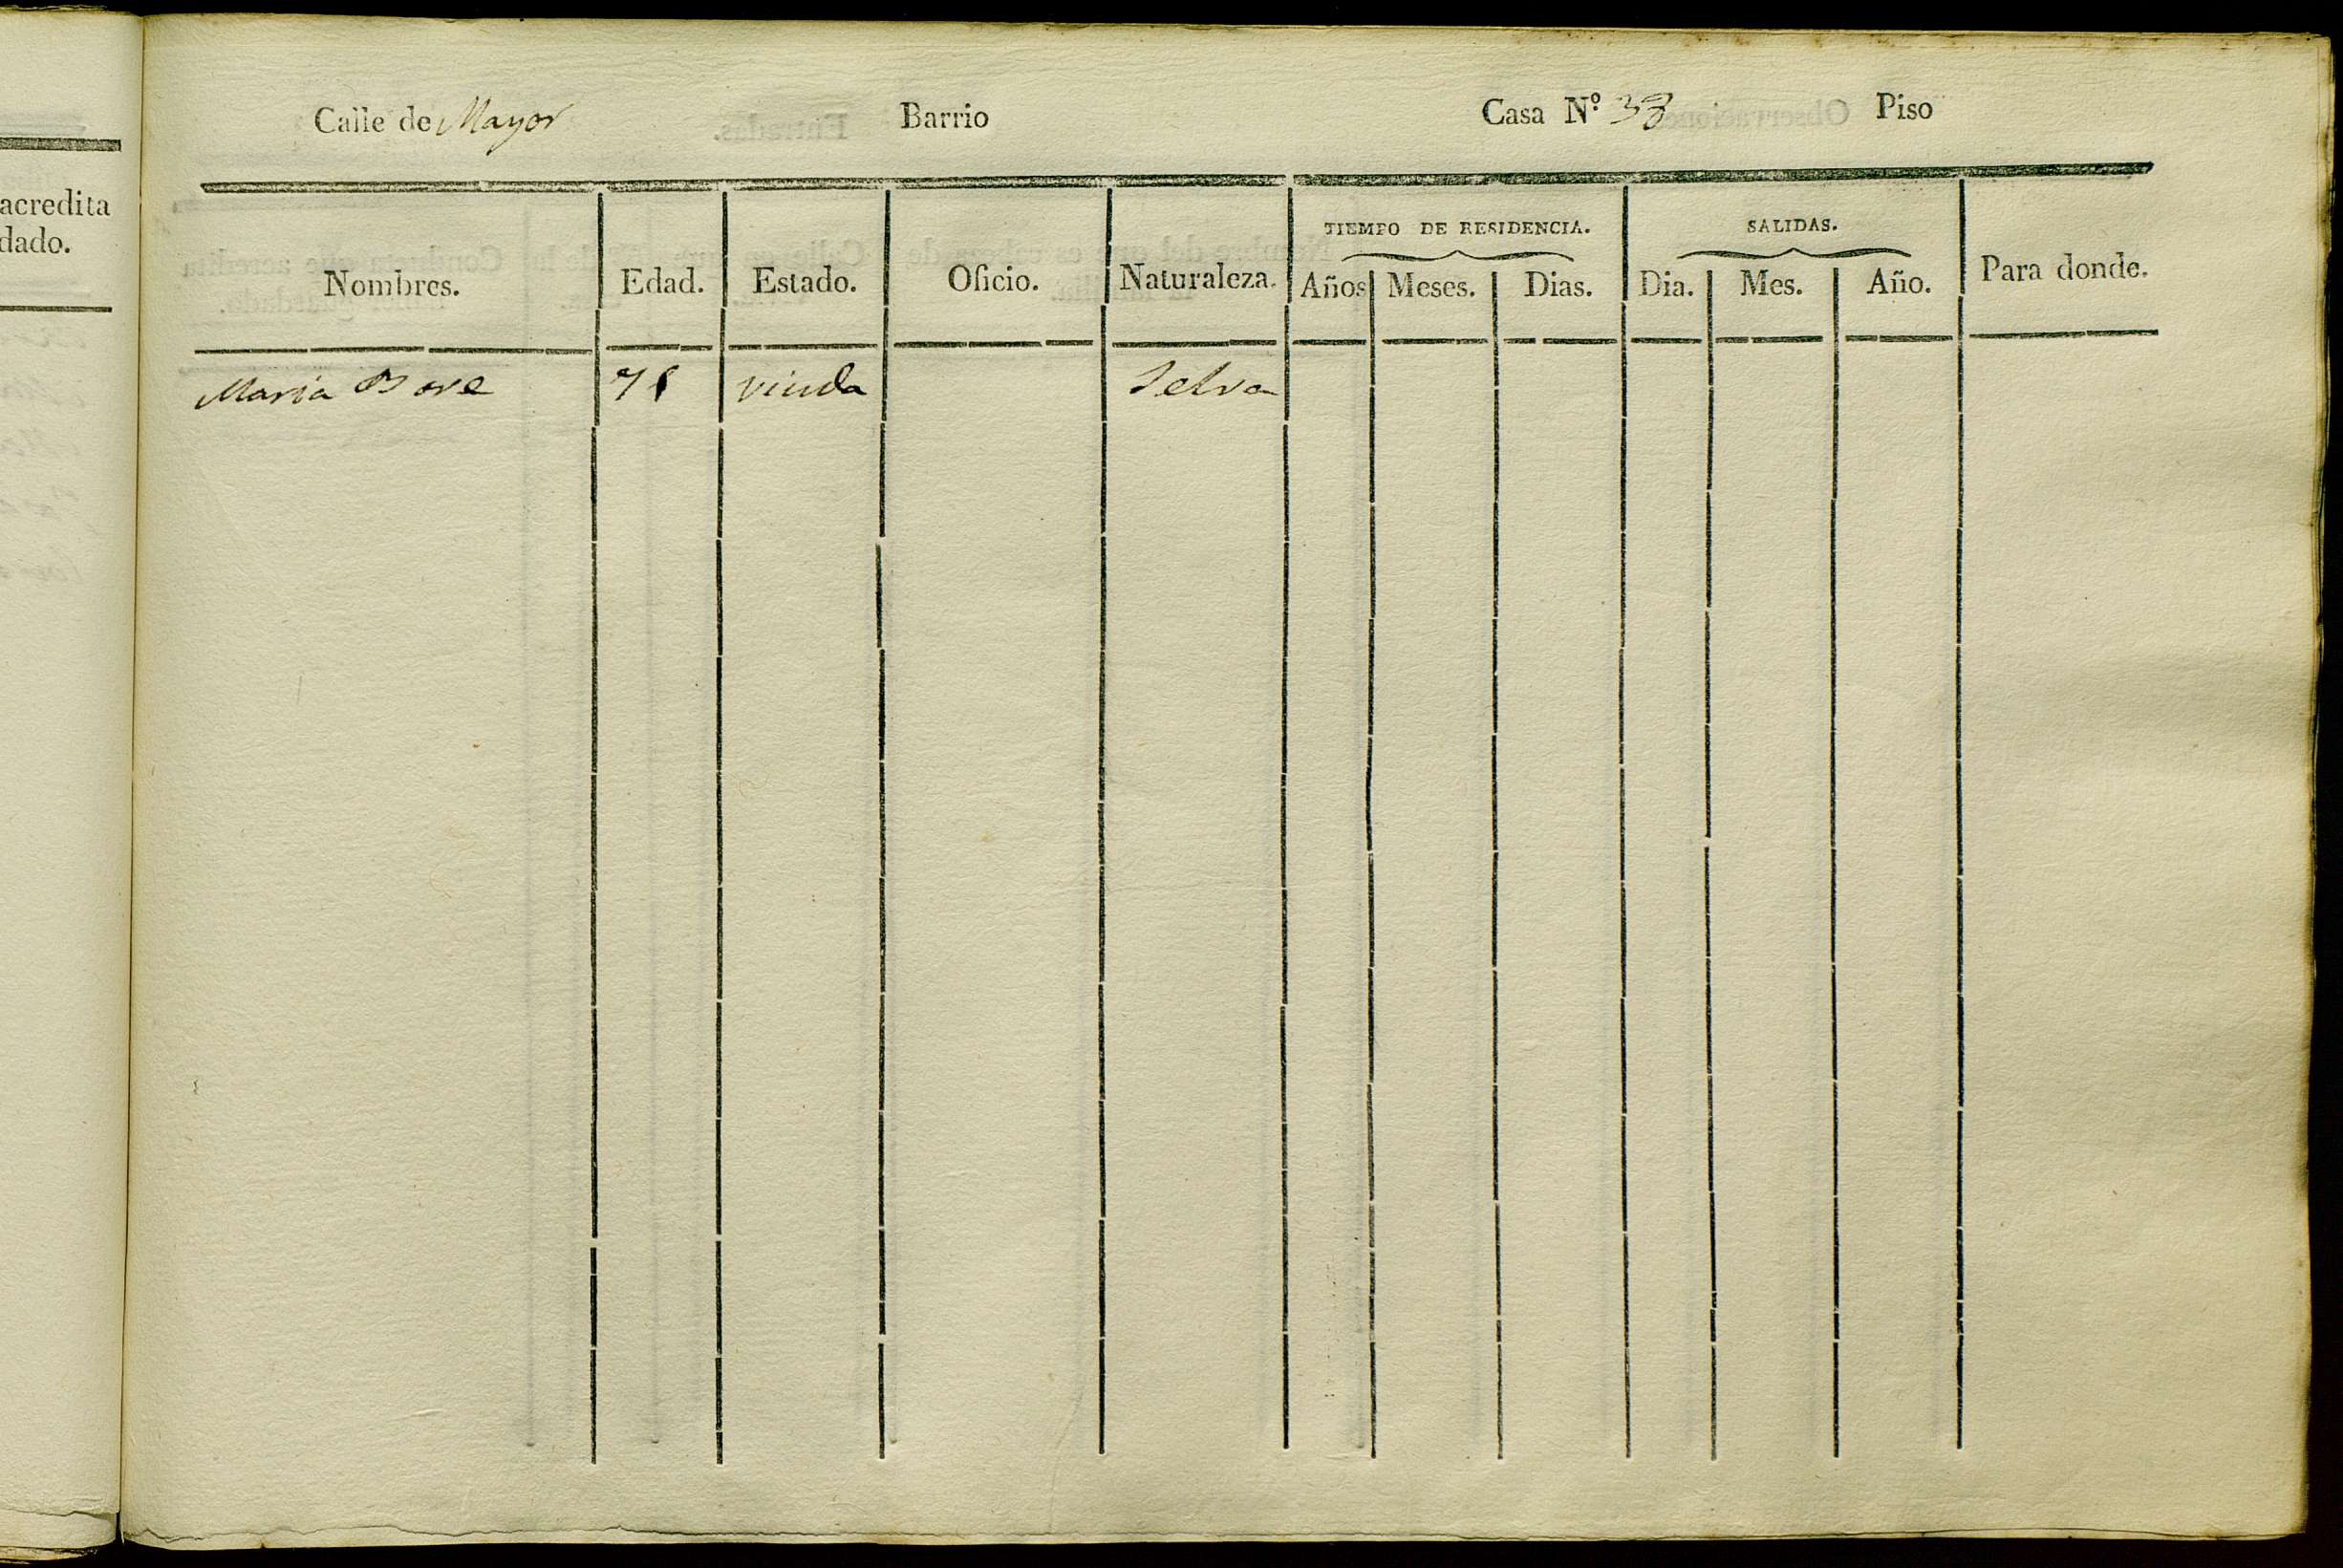 acredita
dado.
Calle de Mayor Barrio Casa Nº 38 Piso
TIEMPO DE RESIDENCIA. SALIDAS.
Nombres. Edad. Estado. Oficio. Naturaleza. Años Meses. Dias. Dia. Mes. Año. Para donde.
Maria Bove viuda Selva